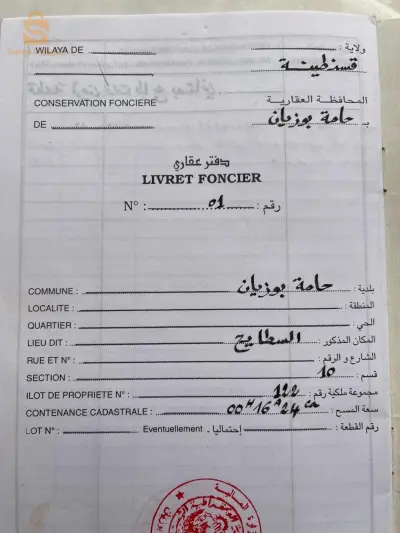 WILAYA DE ولاية :
قسنطينة
CONSERVATION FONCIERE المحافظة العقارية
DE حامة بوزيان بـ
دفتر عقاري
LIVRET FONCIER
N° : 01 رقم :
COMMUNE : حامة بوزيان بلدية :
LOCALITE : المنطقة :
QUARTIER : الحي :
LIEU DIT : السطايح المكان المذكور :
RUE ET N° : الشارع و الرقم :
SECTION : 10 قسم :
ILOT DE PROPRIETE N° : 122 مجموعة ملكية رقم :
CONTENANCE CADASTRALE : 00H 16A 24ca سعة المسح :
LOT N° : Eventuellement إحتماليا رقم القطعة :